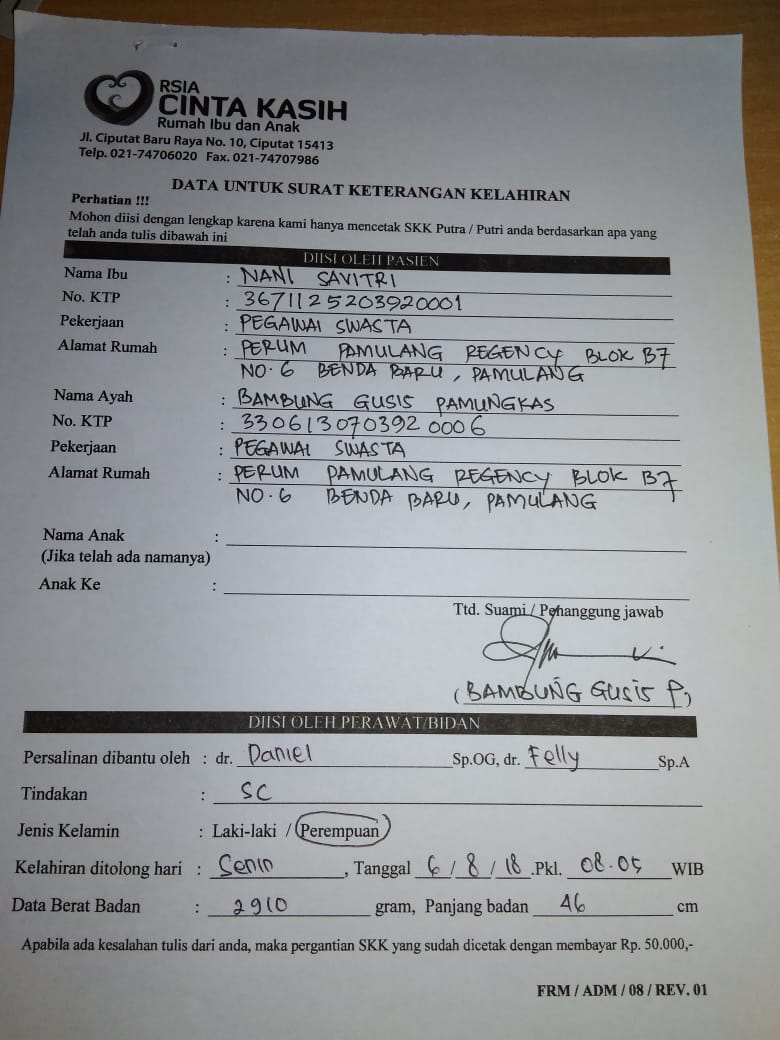 RSIA
CINTA KASIH
Rumah Ibu dan Anak
Jl. Ciputat Baru Raya No. 10, Ciputat 15413
Telp. 021-74706020 Fax. 021-74707986
DATA UNTUK SURAT KETERANGAN KELAHIRAN
Perhatian !!!
Mohon diisi dengan lengkap karena kami hanya mencetak SKK Putra / Putri anda berdasarkan apa yang
telah anda tulis dibawah ini
DIISI OLEH PASIEN
Nama Ibu : NANI SAVITRI
No. KTP : 3671125203920001
Pekerjaan : PEGAWAI SWASTA
Alamat Rumah : PERUM PAMULANG REGENCY BLOK B7
NO.6 BENDA BARU, PAMULANG
Nama Ayah : BAMBUNG GUSIS PAMUNGKAS
No. KTP : 3306130703920006
Pekerjaan : PEGAWAI SWASTA
Alamat Rumah : PERUM PAMULANG REGENCY BLOK B7
NO.6 BENDA BARU, PAMULANG
Nama Anak :
(Jika telah ada namanya)
Anak Ke :
Ttd. Suami / Penanggung jawab
(BAMBUNG GUSIS P)
DIISI OLEH PERAWAT/BIDAN
Persalinan dibantu oleh : dr. Daniel Sp.OG, dr. Felly Sp.A
Tindakan : SC
Jenis Kelamin : Laki-laki / Perempuan
Kelahiran ditolong hari : Senin, Tanggal 6 / 8 / 18 .Pkl. 08.05 WIB
Data Berat Badan : 2910 gram, Panjang badan 46 cm
Apabila ada kesalahan tulis dari anda, maka pergantian SKK yang sudah dicetak dengan membayar Rp. 50.000,-
FRM / ADM / 08 / REV. 01